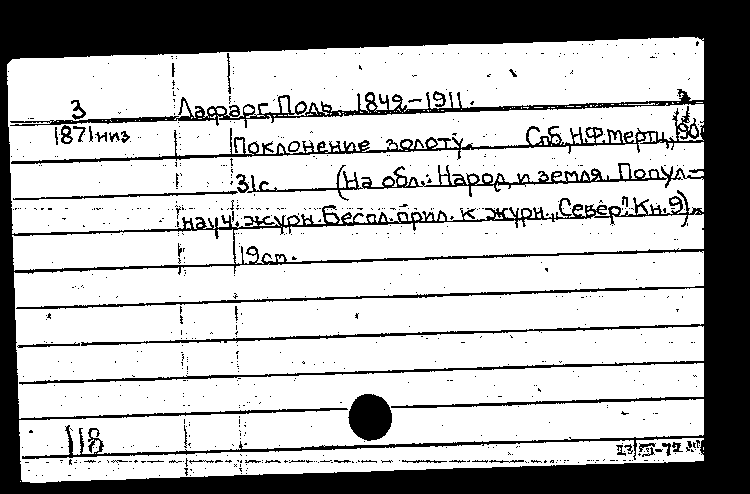 3 Лафарг, Поль. 1842-1911.
1871низ
Поклонение золоту. Спб., Н.Ф.Мертц,
31с. (На обл.: Народ и земля. Попул-
науч. журн. Беспл. прил. к журн. „Север". Кн. 9).
19см.
118